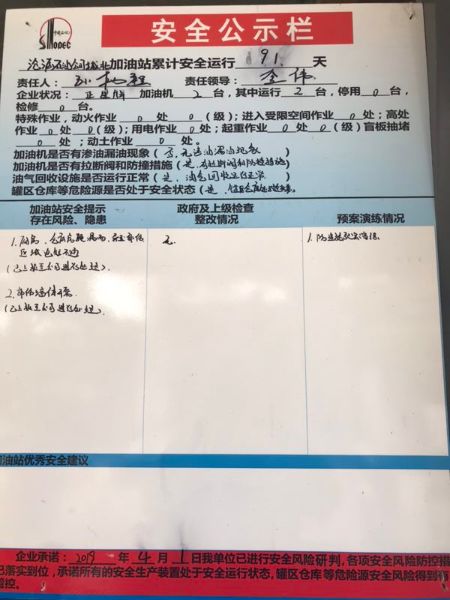 SINOPEC
安全公示栏
加油站累计安全运行 91 天
责任人: 责任领导: 李伟
企业状况: 正常 加油机 2 台,其中运行 2 台,停用 0 台,
检修 0 台。
特殊作业,动火作业 0 处 0 (级);进入受限空间作业 0 处;高处
作业 0 处 0 (级);用电作业 0 处;起重作业 0 处 0 (级)盲板抽堵
0 处;动土作业 0 处。
加油机是否有渗油漏油现象(否,无渗油漏油现象)
加油机是否有拉断阀和防撞措施(是,有拉断阀和防撞措施)
油气回收设施是否运行正常(是,油气回收运行正常)
罐区仓库等危险源是否处于安全状态(是,
加油站安全提示
存在风险、隐患
政府及上级检查
整改情况
预案演练情况
1.
无
1.
区域
(已上报至公司进行处理)
2.
(已上报至公司进行处理)
加油站优秀安全建议
企业承诺: 2019 年 4 月 1 日我单位已进行安全风险研判,各项安全风险防控措
已落实到位,承诺所有的安全生产装置处于安全运行状态,罐区仓库等危险源安全风险得到有
管控。